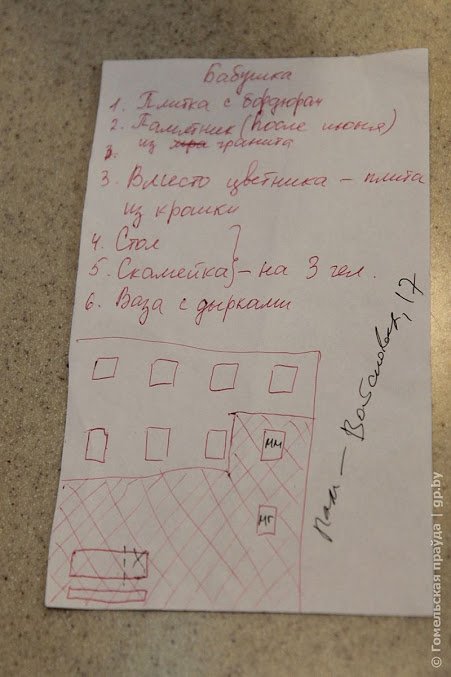 Бабушка
1. Плитка с бордюром
2. Памятник (после июня)
из гранита
3.
3. Вместо цветника – плита
из крошки
4. Стол
5. Скамейка – на 3 чел.
6. Ваза с дырками
мм
мг
17
© Гомельская праўда | gp.by